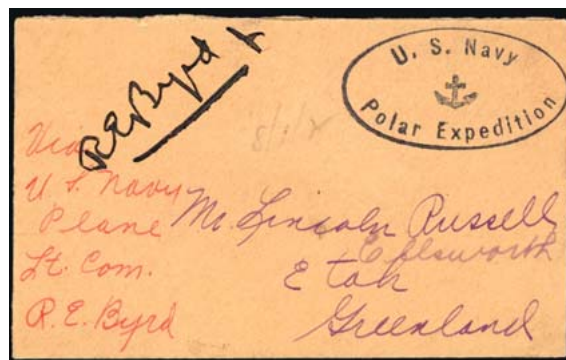 R.E. Byrd
U. S. Navy
Polar Expedition
Via
U. S. Navy
Plane
Lt. Com.
R. E. Byrd
Mr. Lincoln Russell
Ellsworth
Etah
Greenland